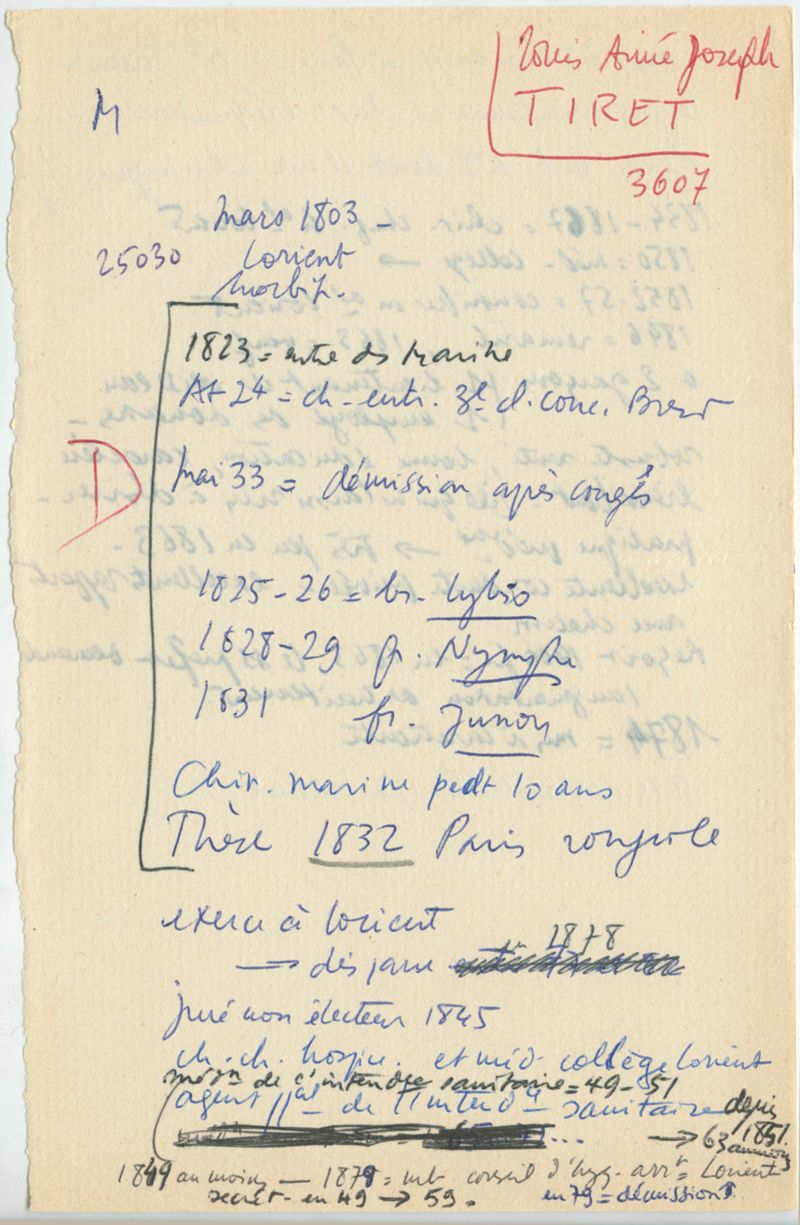 Louis Aimé Joseph
TIRET
3607
M
mars 1803 -
25030 Lorient
Morbih.
1823 = entre ds Marine
At 24 = ch. entr. 3e cl. conc. Brest
D
mai 33 = démission après congés
1825-26 = br. Lybio
1828-29 fr. Nymphe
1831 fr. Junon
Chir. marine pedt 10 ans
Thèse 1832 Paris rougeole
exerce à Lorient
→ 1878
juré non électeur 1845
ch. ch. hospice. et méd collège Lorient
méd de l'intendce sanitaire = 49-51
agent pal de l'intend sanitaire depuis 1851
→ 63 au moins
1849 au moins - 1879 = mb conseil d'hyg. arrt Lorient
secrét. en 49 → 59. en 79 = démission